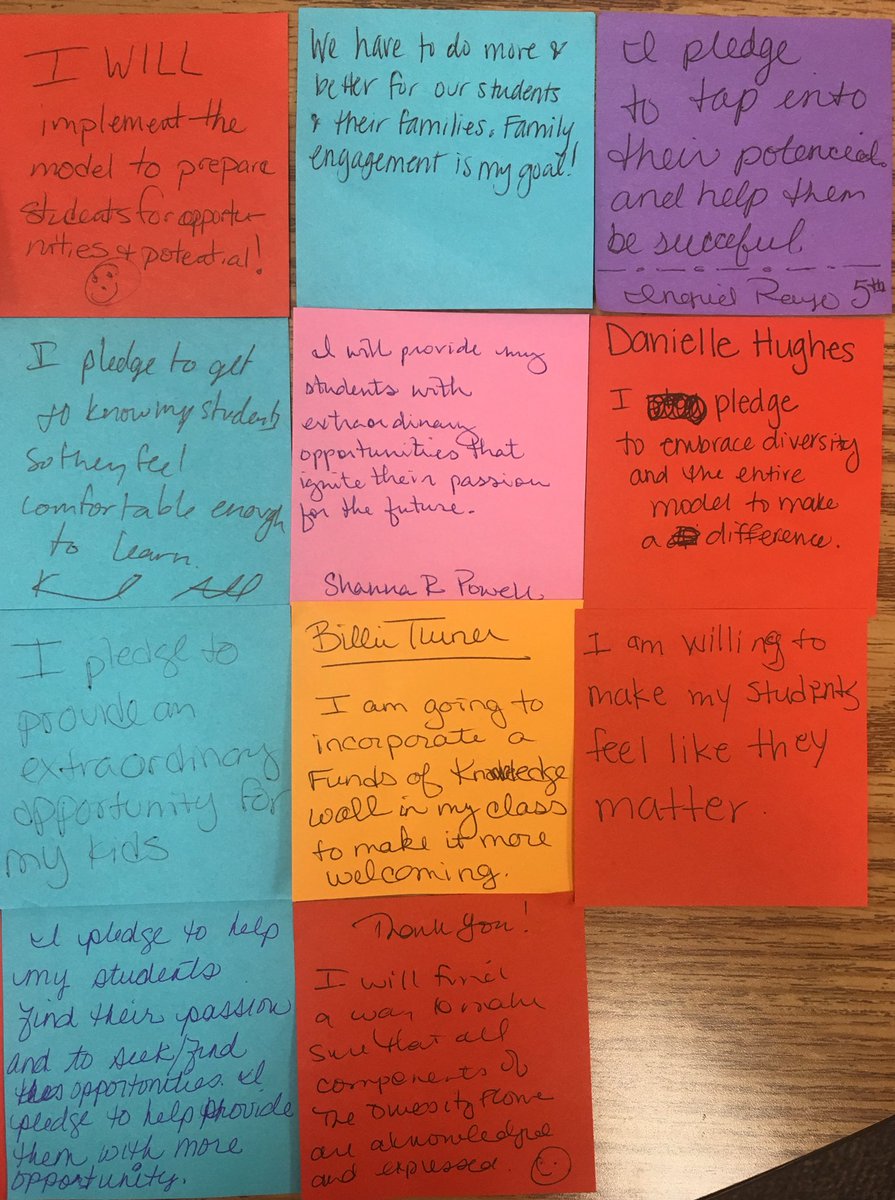 I WILL
implement the
model to prepare
students for opportu-
nities & potential!
We have to do more &
better for our students
& their families. Family
engagement is my goal!
I pledge
to tap into
their potencial
and help them
be succeful
5th
I pledge to get
to know my students
so they feel
comfortable enough
to learn.
I will provide my
students with
extraordinary
opportunities that
ignite their passion
for the future.
Shanna R Powell
Danielle Hughes
I pledge
to embrace diversity
and the entire
model to make
a difference.
I pledge to
provide an
extraordinary
opportunity for
my kids
Billie Turner
I am going to
incorporate a
Funds of Knowledge
wall in my class
to make it more
welcoming.
I am willing to
make my students
feel like they
matter
I pledge to help
my students
find their passion
and to seek/find
opportunities. I
pledge to help provide
them with more
opportunity.
Thank you!
I will find
a way to make
sure that all
components of
The
are aknowledge
and expressed.